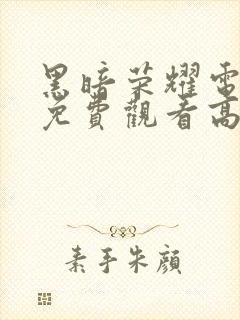 黑暗荣耀電
免費觀看高
素手朱顔